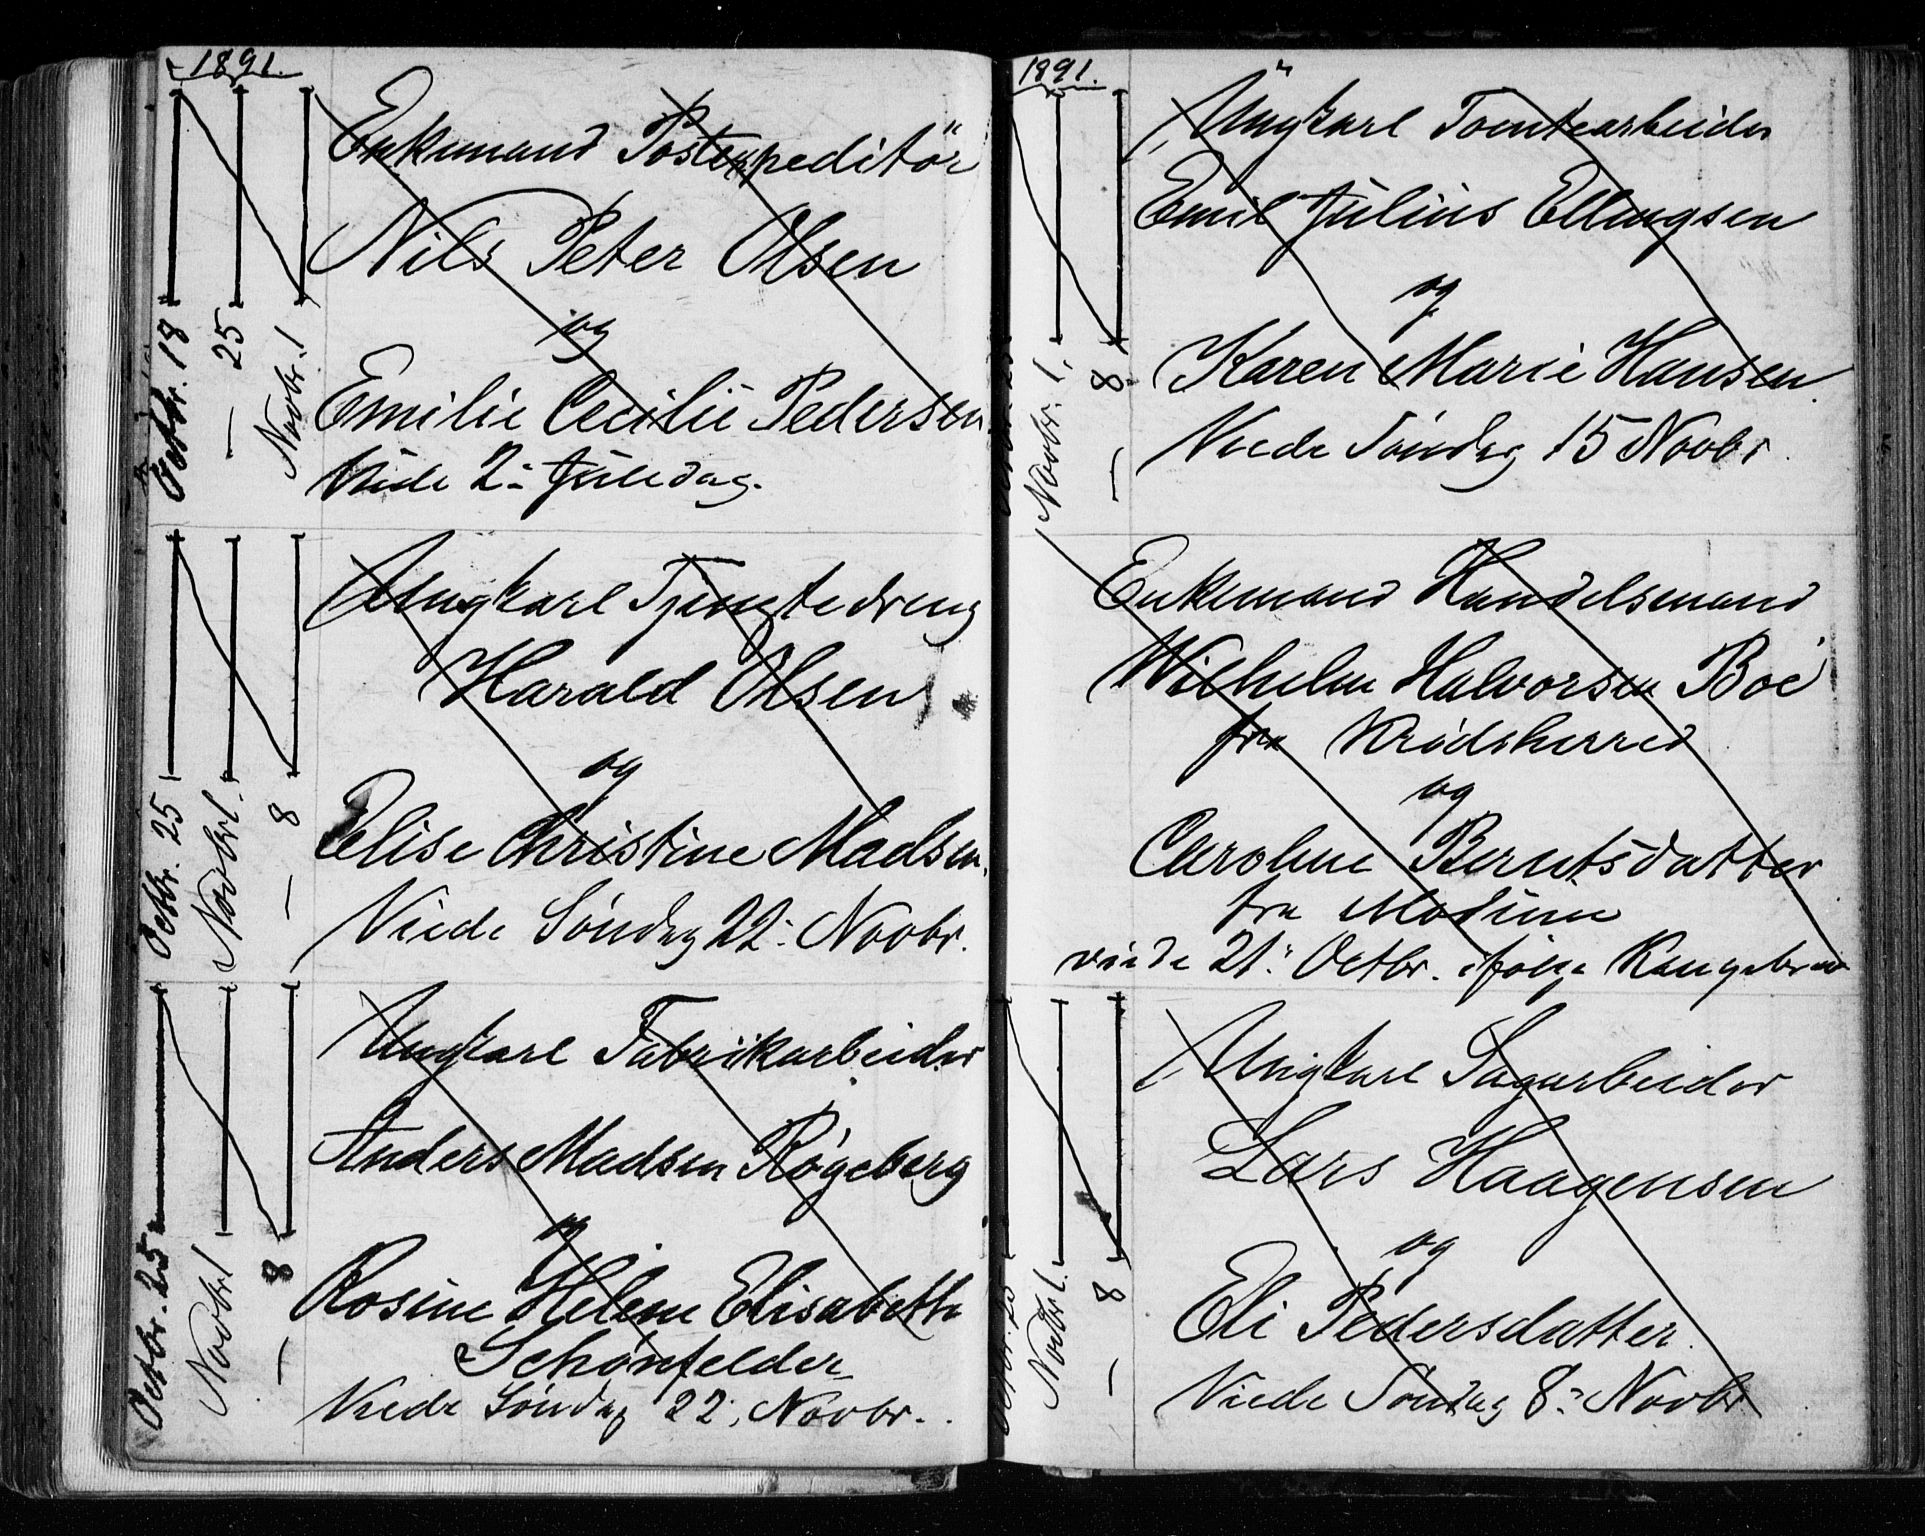 1891.
Octbr. 18
— 25
Novbr. 1
Enkemand Postexpeditør
Nils Peter Olsen
og
Emilie Cecilie Pedersen
Viede 2: Juledag.
Octbr. 25
Novbr 1.
— 8
Ungkarl Tjenstedreng
Harald Olsen
og
Elise Christine Madsen.
Viede Søndag 22: Novbr.
Octbr. 25
Novbr 1
— 8
Ungkarl Fabrikarbeider
Anders Madsen Røgeberg
og
Rosine Helene Elisabeth
Schønfelder
Viede Søndag 22. Novbr.
1891.
Novbr. 1.
— 8
Ungkarl Tomtearbeider
Emil Julius Ellingsen
og
Karen Marie Hansen
Viede Søndag 15 Novbr.
Enkemand Handelsmand
Wilhelm Halvorsen Boe
fra Krødsherred
og
Caroline Berntsdatter
fra Modum
viede 21: Octbr. ifølge Kongebrev
Octbr. 25
Novbr 1.
— 8
Ungkarl Sagarbeider
Lars Haagensen
og
Eli Pedersdatter.
Viede Søndag 8: Novbr